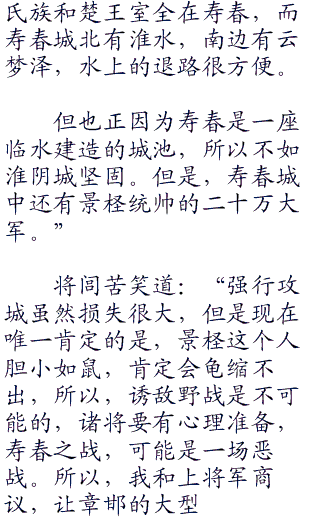 氏族和楚王室全在寿春，而
寿春城北有淮水，南边有云
梦泽，水上的退路很方便。
但也正因为寿春是一座
临水建造的城池，所以不如
淮阴城坚固。但是，寿春城
中还有景柽统帅的二十万大
军。”
将闾苦笑道：“强行攻
城虽然损失很大，但是现在
唯一肯定的是，景柽这个人
胆小如鼠，肯定会龟缩不
出，所以，诱敌野战是不可
能的，诸将要有心理准备，
寿春之战，可能是一场恶
战。所以，我和上将军商
议，让章邯的大型